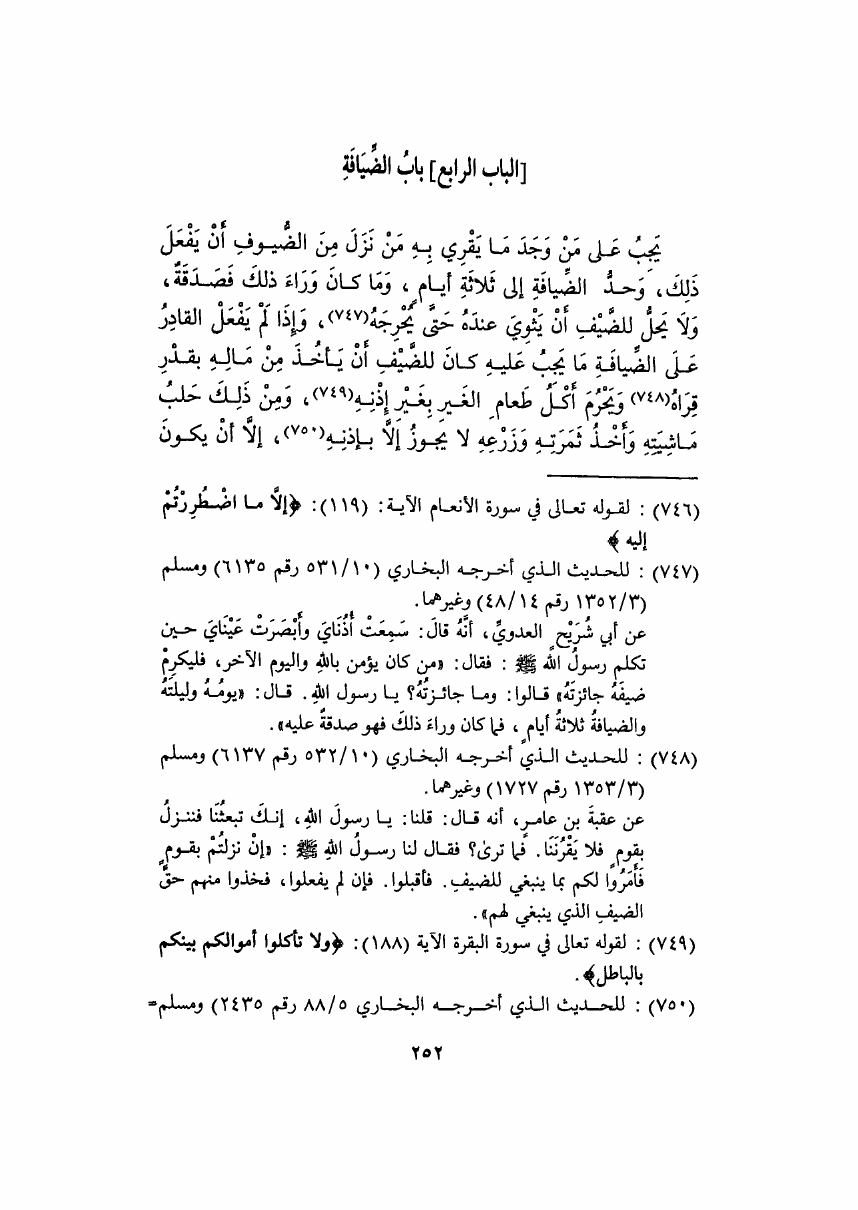 [الباب الرابع] بابُ الضِّيَافَةِ
يَجِبُ عَلى مَنْ وَجَدَ مَا يَقْرِي بِهِ مَنْ نَزَلَ مِنَ الضُّيوفِ أَنْ يَفْعَلَ
ذلِكَ، وَحدُّ الضِّيافَةِ إلى ثَلاثَةِ أيامٍ، وَمَا كانَ وَرَاءَ ذلكَ فَصَدَقَةٌ،
وَلَا يَحلُّ للضَّيْفِ أَنْ يَثْوِيَ عندَهُ حَتَّى يُحْرِجَهُ(٧٤٧)، وَإذَا لَمْ يَفْعَلْ القادِرُ
عَلَى الضِّيافَةِ مَا يَجِبُ عَليهِ كانَ للضَّيْفِ أَنْ يَأخُذَ مِنْ مَالِهِ بقدْرِ
قِرَاهُ(٧٤٨) وَيَحْرُمُ أَكْلُ طَعامِ الغَيرِ بِغَيْرِ إذْنِهِ(٧٤٩)، وَمِنْ ذَلِكَ حَلبُ
مَاشِيَتِهِ وَأَخْذُ ثَمَرَتِهِ وَزَرْعِهِ لا يَجوزُ إلَّا بإذنِهِ(٧٥٠)، إلَّا أنْ يكونَ
(٧٤٦) : لقوله تعالى في سورة الأنعام الآية: (١١٩): ﴿إلَّا ما اضْطُرِرْتُمْ
إليه﴾
(٧٤٧) : للحديث الذي أخرجه البخاري (٥٣١/١٠ رقم ٦١٣٥) ومسلم
(١٣٥٢/٣ رقم ٤٨/١٤) وغيرهما.
عن أبي شُرَيْحٍ العدويِّ، أنَّهُ قالَ: سَمِعَتْ أُذُنَايَ وأَبْصَرَتْ عَيْنَايَ حين
تكلم رسولُ الله ﷺ : فقال: «من كان يؤمن باللهِ واليوم الآخر، فليكرِمْ
ضيفَهُ جائزتَهُ» قالوا: وما جائزتُهُ؟ يا رسول اللهِ. قال: «يومُهُ وليلتَهُ
والضيافةُ ثلاثةُ أيامٍ، فما كان وراءَ ذلكَ فهو صدقةٌ عليه».
(٧٤٨) : للحديث الذي أخرجه البخاري (٥٣٢/١٠ رقم ٦١٣٧) ومسلم
(١٣٥٣/٣ رقم ١٧٢٧) وغيرهما.
عن عقبةَ بن عامرٍ، أنه قال: قلنا: يا رسولَ اللهِ، إنكَ تبعثُنَا فننزلُ
بقومٍ فلا يَقْرُنَنَا. فما ترىٰ؟ فقال لنا رسولُ اللهِ ﷺ : «إنْ نزلتُمْ بقومٍ
فَأَمَرُوا لكم بما ينبغي للضيفِ. فأقبلوا. فإن لم يفعلوا، فخذوا منهم حقَّ
الضيفِ الذي ينبغي لهم».
(٧٤٩) : لقوله تعالى في سورة البقرة الآية (١٨٨): ﴿ولا تأكلوا أموالكم بينكم
بالباطل﴾.
(٧٥٠) : للحديث الذي أخرجه البخاري ٨٨/٥ رقم ٢٤٣٥) ومسلم=
٢٥٢